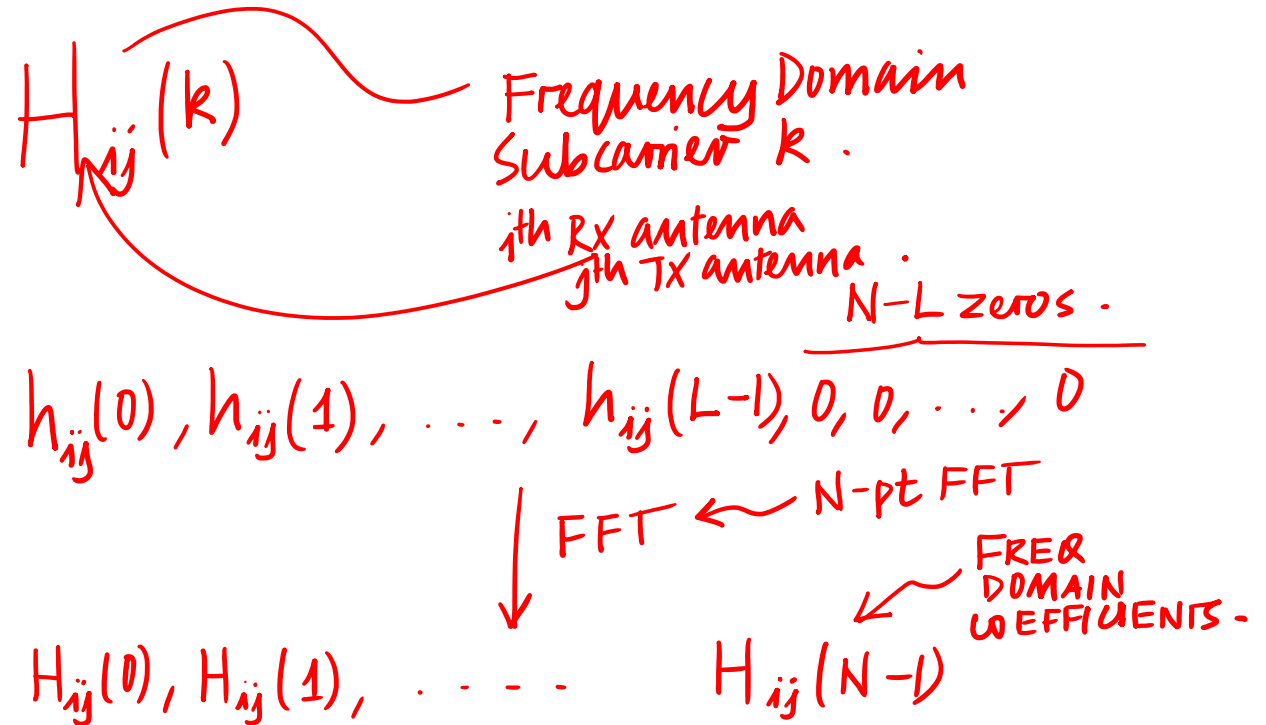 H_ij(k)
Frequency Domain
Subcarrier k.
ith RX antenna
jth TX antenna.
N-L zeros.
h_ij(0), h_ij(1), . . . ., h_ij(L-1), 0, 0, . . ., 0
FFT ← N-pt FFT
FREQ
DOMAIN
COEFFICIENTS.
H_ij(0), H_ij(1), . . . . H_ij(N-1)